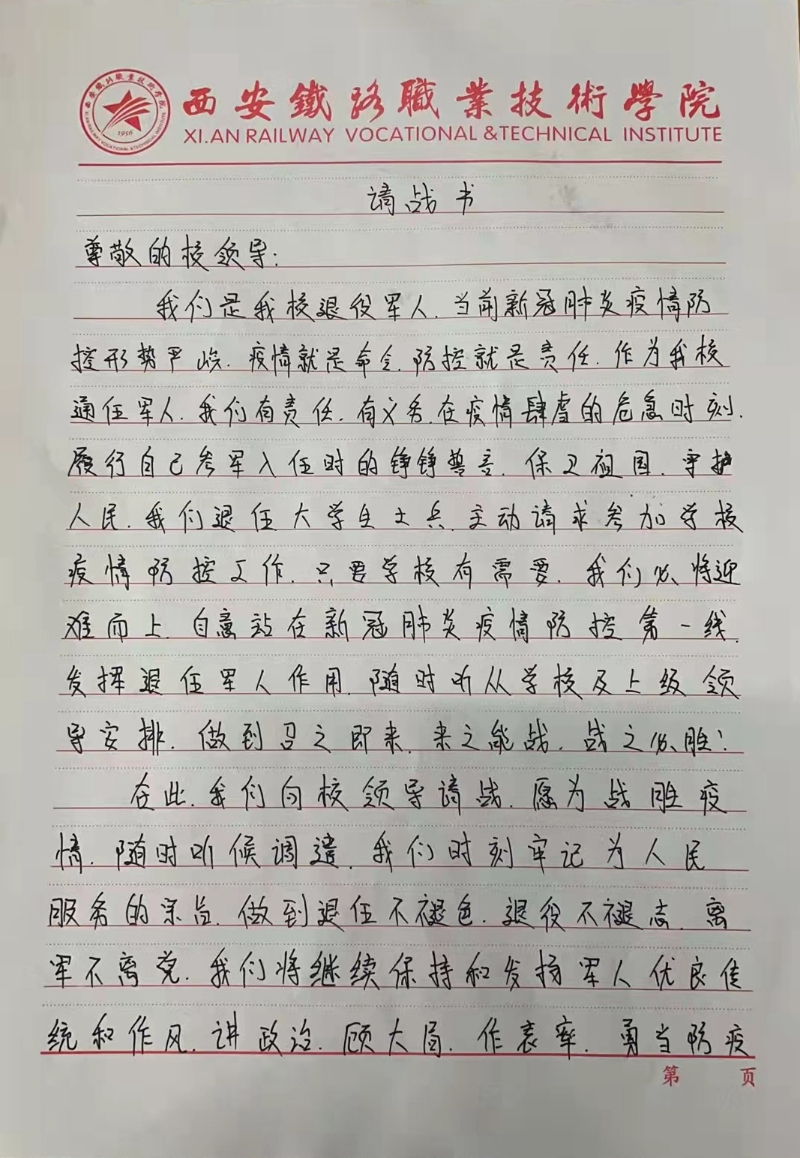 西安鐵路職業技術學院
XI.AN RAILWAY VOCATIONAL &TECHNICAL INSTITUTE
1956
请战书
尊敬的校领导:
我们是我校退役军人.当前新冠肺炎疫情防
控形势严峻.疫情就是命令.防控就是责任.作为我校
通伍军人.我们有责任.有义务.在疫情肆虐的危急时刻.
履行自己参军入伍时的铮铮誓言.保卫祖国.守护
人民.我们退伍大学生士兵.主动请求参加学校
疫情防控工作.只要学校有需要.我们必将迎
难而上.自愿站在新冠肺炎疫情防控第一线.
发挥退伍军人作用.随时听从学校及上级领
导安排.做到召之即来.来之能战.战之必胜!
在此.我们向校领导请战.愿为战胜疫
情.随时听候调遣.我们时刻牢记为人民
服务的宗旨.做到退伍不褪色.退役不褪志.离
军不离党.我们将继续保持和发扬军人优良传
统和作风.讲政治.顾大局.作表率.勇当防疫
第 页